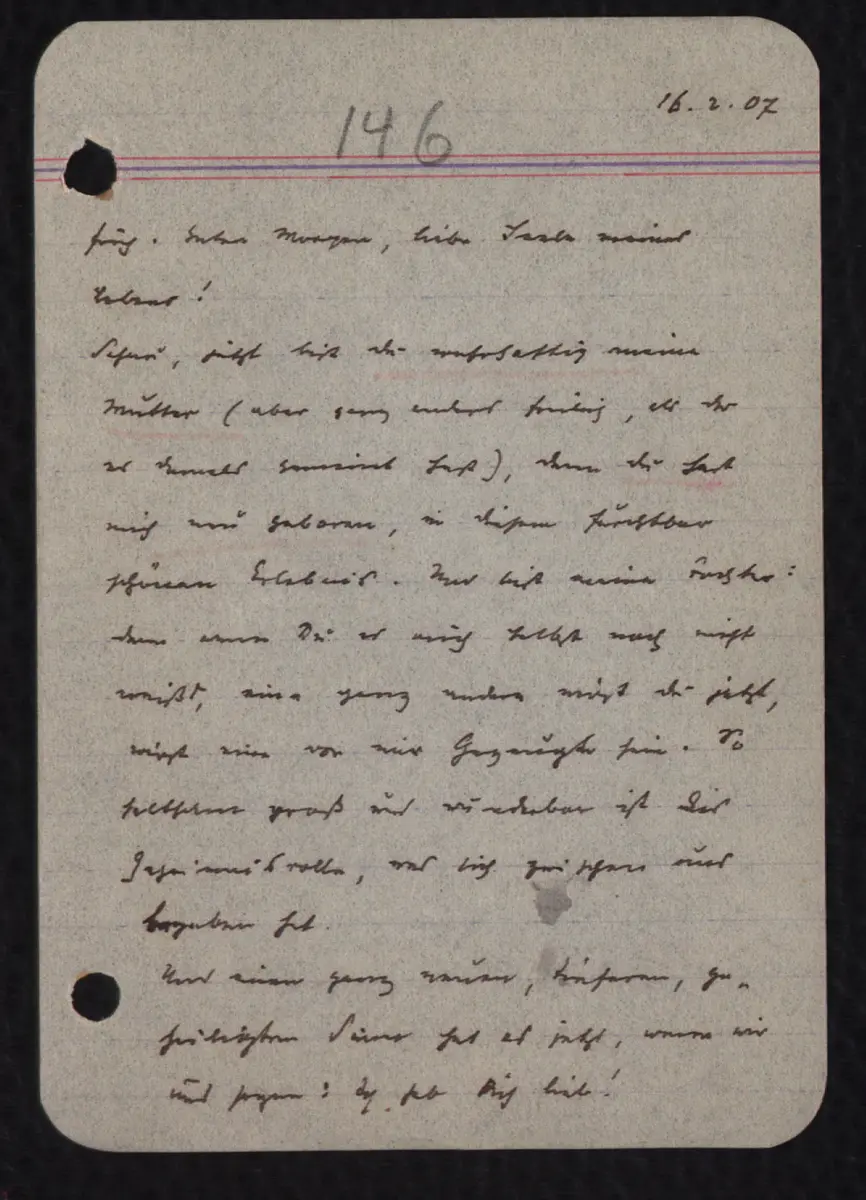 146
16.2.07
früh. Guten Morgen, liebe Seele meines
Lebens!
Schau, jetzt bist du wahrhaftig meine
Mutter (aber ganz anders freilich, als du
es damals gemeint hast), denn du hast
mich neu geboren, in diesem furchtbar
schönen Erlebnis. Und bist meine Tochter:
denn wenn Du es auch selbst noch nicht
weißt, eine ganz andere wirst du jetzt,
wirst eine von mir Gezeugte sein. So
seltsam groß und wunderbar ist das
Geheimnisvolle, was sich zwischen uns
begeben hat.
Und einen ganz neuen, tieferen, ge-
heiligten Sinn hat es jetzt, wenn wir
uns sagen: Ich hab Dich lieb!